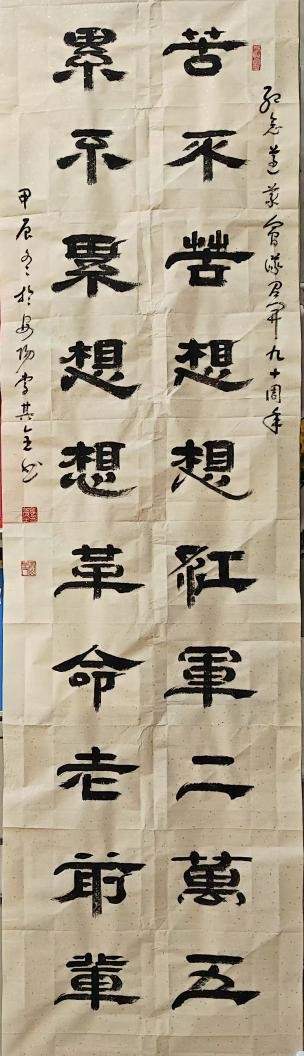 紀念遵義會議召開九十周年
苦不苦想想紅軍二萬五
累不累想想革命老前輩
甲辰冬於安陽 其 书